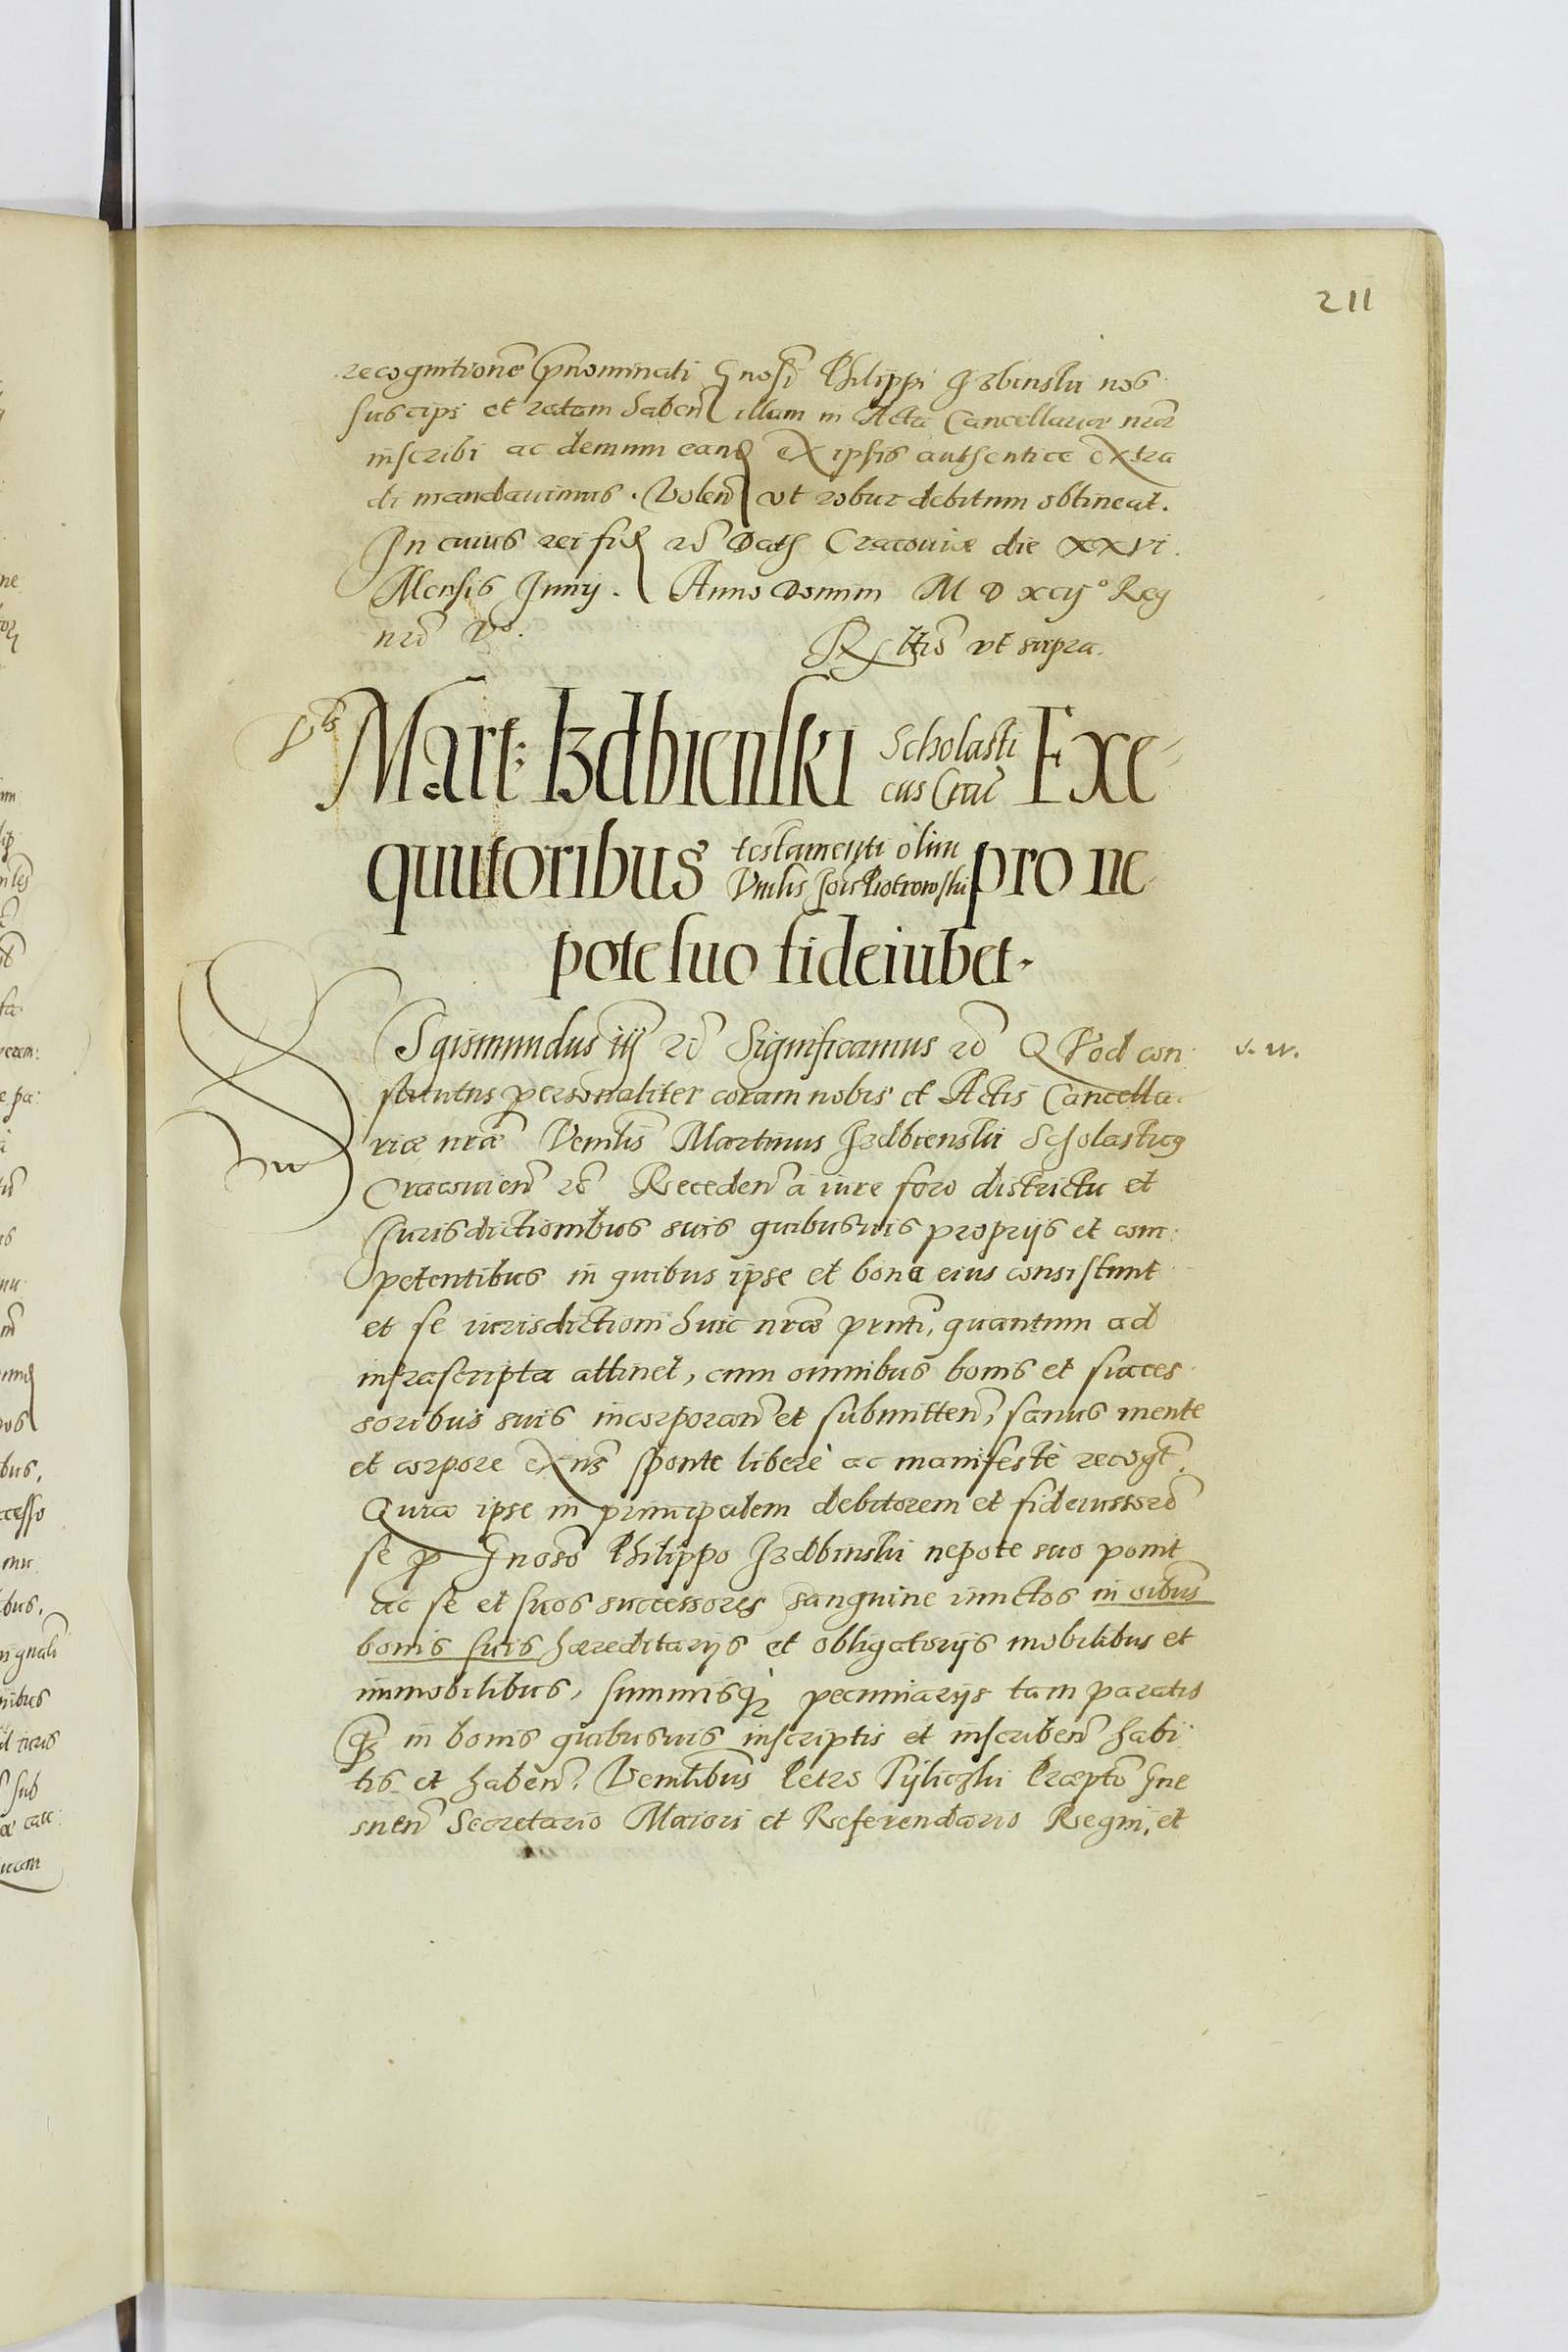 211
recognitionē p̄nominati Gnosi Philippi Izbinski nos
suscipi et ratam haben̄ illam in Acta Cancellariæ nr̄æ
inscribi ac demum eand ex ipsis authentice extra
di mandavimus. Volen̄ vt robur debitum obtineat.
In cuius rei fid Dat Cracoviæ die XXVI.
Mensis Junij. Anno Domini M D XCIJ° Reg
nr̄i V°.
R ut supra.
Mart: Izdbienski Scholasti
cus Exe-
quutoribus testamenti olim
Vnlis Jois Piotrowski pro ne
pote suo fideiubet.
Sigismundus iij Significamus QVod con
s. w.
stitutus personaliter coram nobis et Actis Cancella
riæ nræ Venlis Martinus Izdbienski Scholasticg
Cracovien̄ Receden̄ a iure foro districtu et
Jurisdictionibus suis quibusvis proprijs et com:
petentibus in quibus ipse et bona eius consistunt
et se iurisdictioni huic nræ prnti, quantum ad
infrascripta attinet, cum omnibus bonis et succes
soribus suis incorporan̄ et submitten̄, sanus mente
et corpore exns sponte liberè ac manifestè recogt.
Quia ipse in principalem debitorem et fideiussorē
se p Gnoso Philippo Izdbinski nepote suo ponit
ac se et suos successores sanguine iunctos in oibus
bonis suis hæreditarijs et obligatorijs mobilibus et
immobilibus, summisq; pecuniarijs tam paratis
q̄ in bonis quibusvis inscriptis et inscriben̄ habi
tis et haben̄. Venlibus Petro Tyliczki Præpto Gne
snen̄ Secretario Maiori et Referendario Regni, et